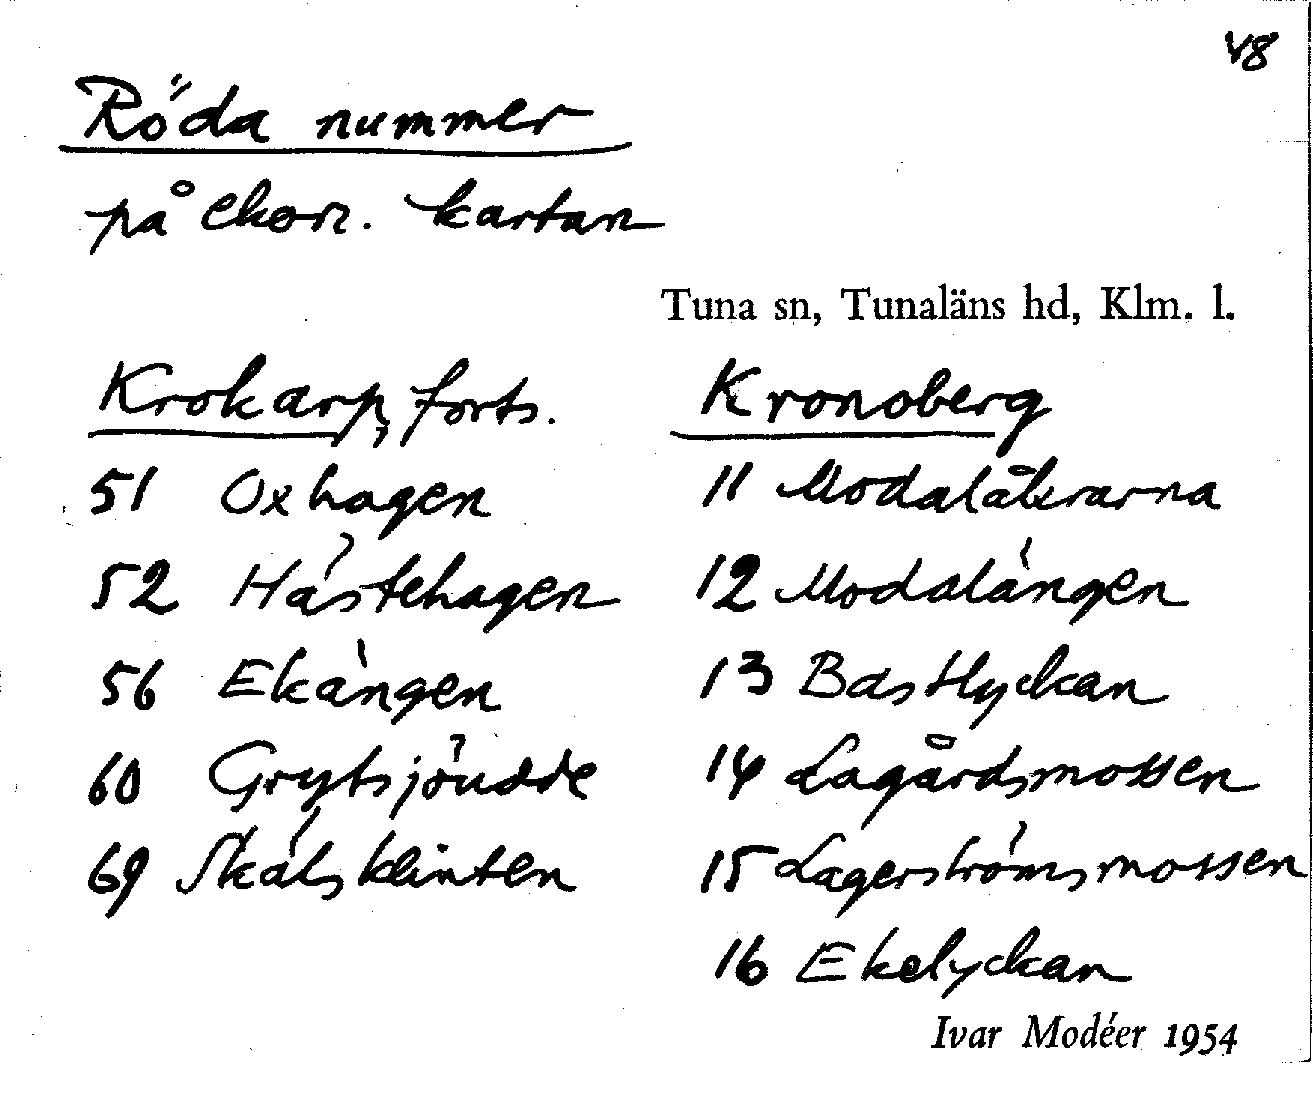 V8
Röda nummer
på ekon. kartan
Tuna sn, Tunaläns hd, Klm. l.
Krokarp, forts.
51 Oxhagen
52 Hästehagen
56 Ekängen
60 Grytsjöudde
69 Skälsklinten
Kronoberg
11 Modalåkrarna
12 Modalängen
13 Bastlyckan
14 Lagårdsmossen
15 Lagerströmsmossen
16 Ekelyckan
Ivar Modéer 1954